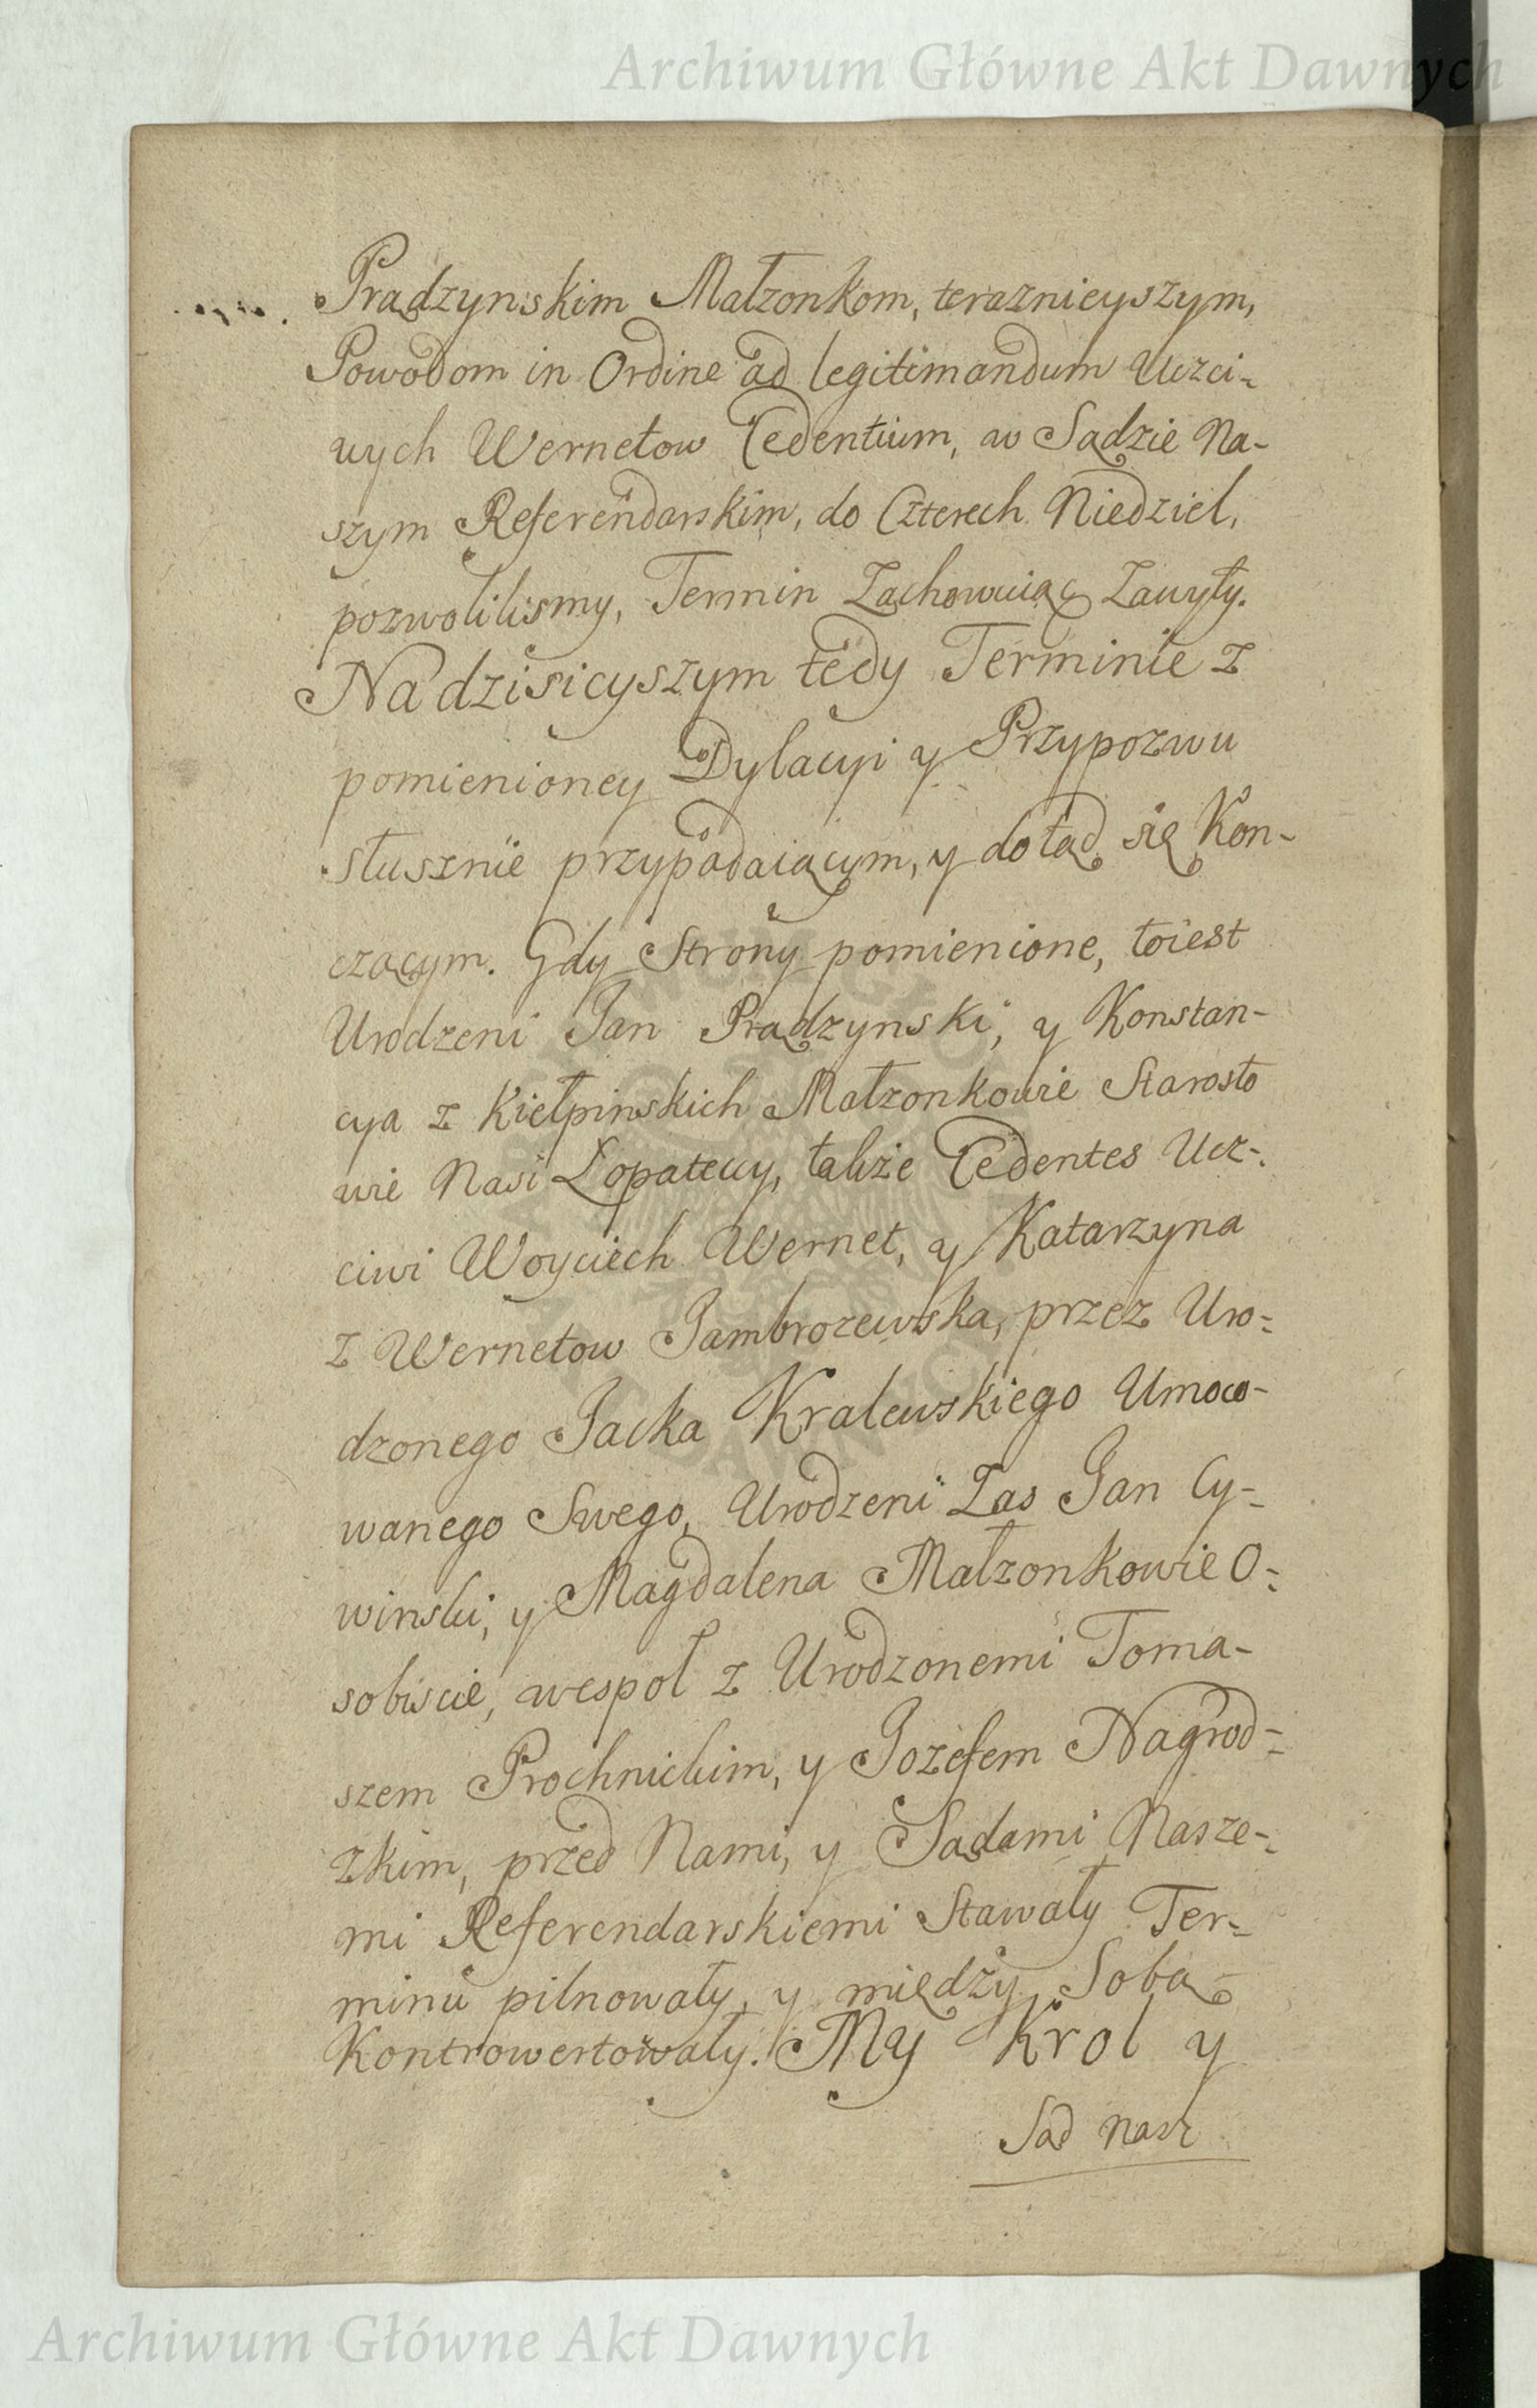 Archiwum Główne Akt Dawnych
Prądzynskim Małzonkom, teraznieyszym,
Powodom in Ordine ad legitimandum Uczci-
wych Wernetow Cedentium, w Sądzie Na-
szym Referendarskim, do Czterech Niedziel,
pozwolilismy, Termin Zachowuiąc Zawyty.
Na dzisieyszym tedy Terminie z
pomienioney Dylacyi y Przypozwu
słusznie przypadaiącym, y dotąd się Kon-
czącym. Gdy Strony pomienione, toiest
Urodzeni Jan Prądzynski, y Konstan-
cya z Kiełpinskich Małzonkowie Starosto
wie Nasi Łopateccy, także Cedentes Ucz-
ciwi Woyciech Wernet, y Katarzyna
z Wernetow Jambrozewska, przez Uro-
dzonego Jacka Kralewskiego Umoco-
wanego Swego, Urodzeni Zas Jan Cy-
winski, y Magdalena Małzonkowie O-
sobiscie, wespoł z Urodzonemi Toma-
szem Prochnickim, y Jozefem Nagrod-
zkim, przed Nami, y Sądami Nasze-
mi Referendarskiemi Stawały Ter-
minu pilnowały, y między Sobą
Kontrowertowały. My Krol y
Sąd Nasz
Archiwum Główne Akt Dawnych